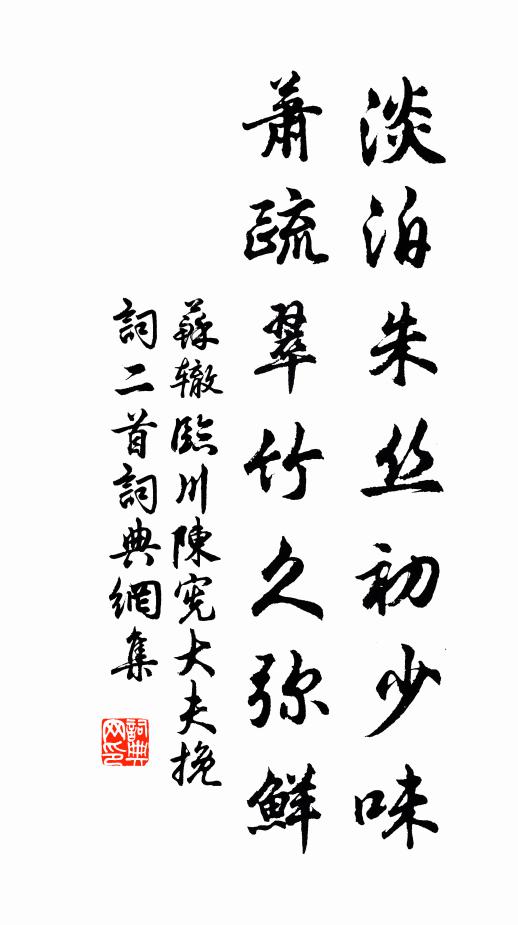 淡泊朱丝初少味
萧疏翠竹久弥鲜
蘇辙臨川陳宪大夫挽
詞二首詞典網集
詞典
网印